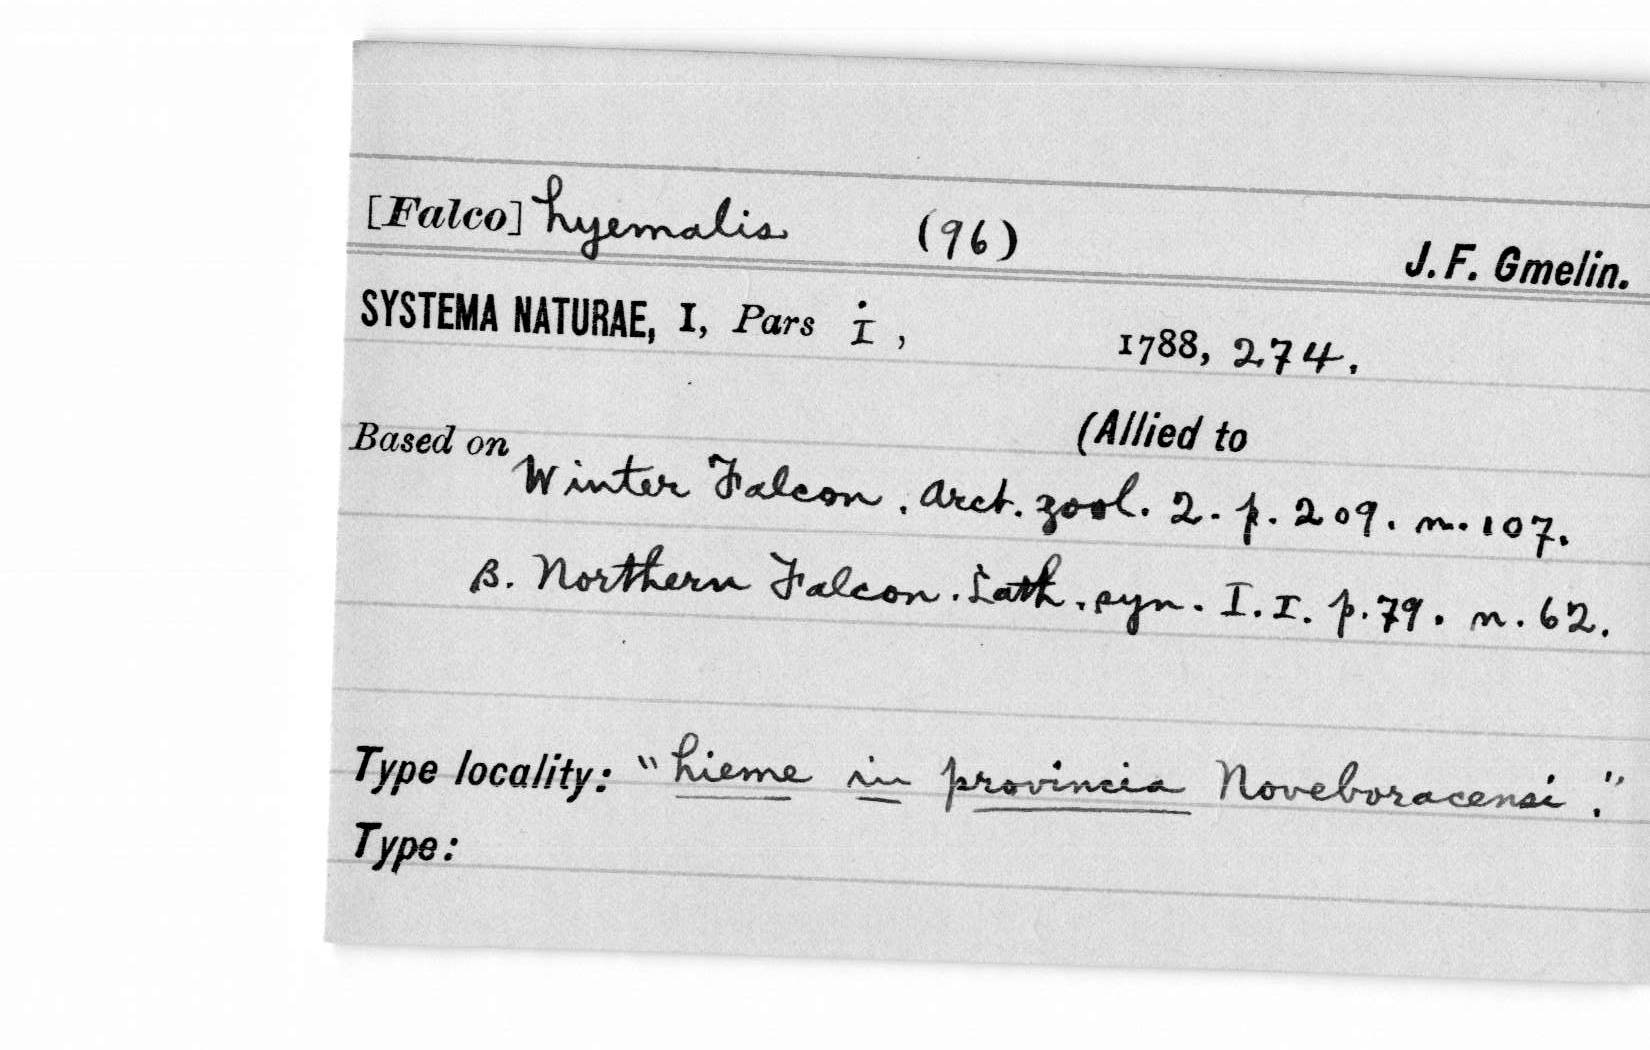 [Falco] hyemalis (96) J. F. Gmelin.
SYSTEMA NATURAE, I, Pars i, 1788, 274.
Based on (Allied to
Winter Falcon. Arct. zool. 2. p. 209. n. 107.
β. Northern Falcon. Lath. syn. I. I. p. 79. n. 62.
Type locality: "hieme in provincia Noveboracensi."
Type: